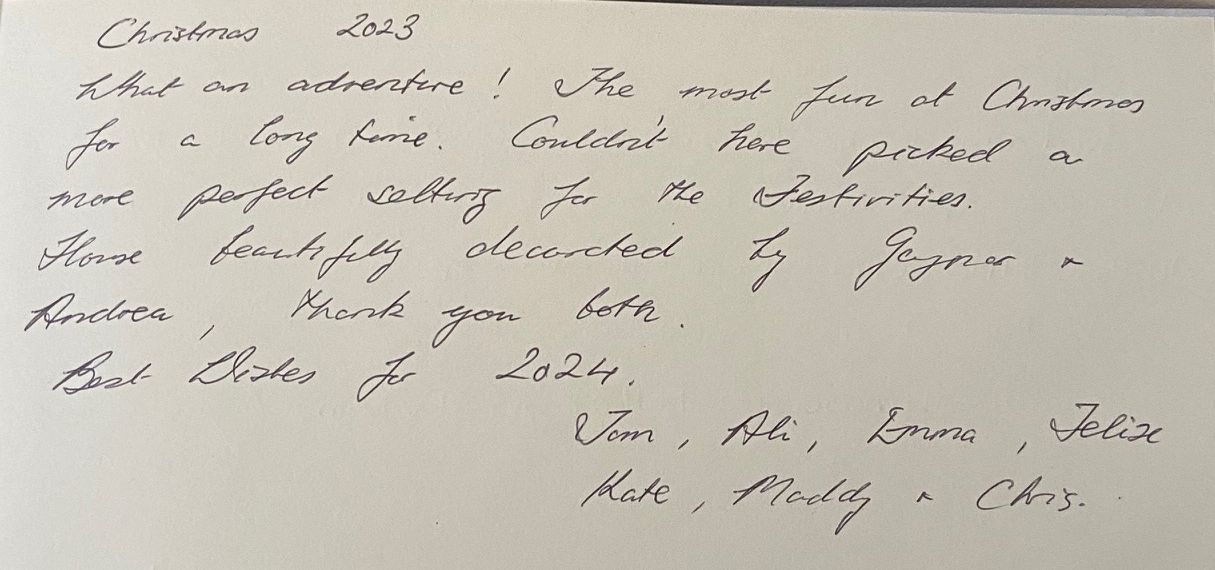 Christmas 2023
What an adventure! The most fun at Christmas
for a long time. Couldn't have picked a
more perfect setting for the Festivities.
House beautifully decorated by Gaynor &
Andrea, thank you both.
Best Wishes for 2024.
Tom, Ali, Emma, Felix
Kate, Maddy & Chris.